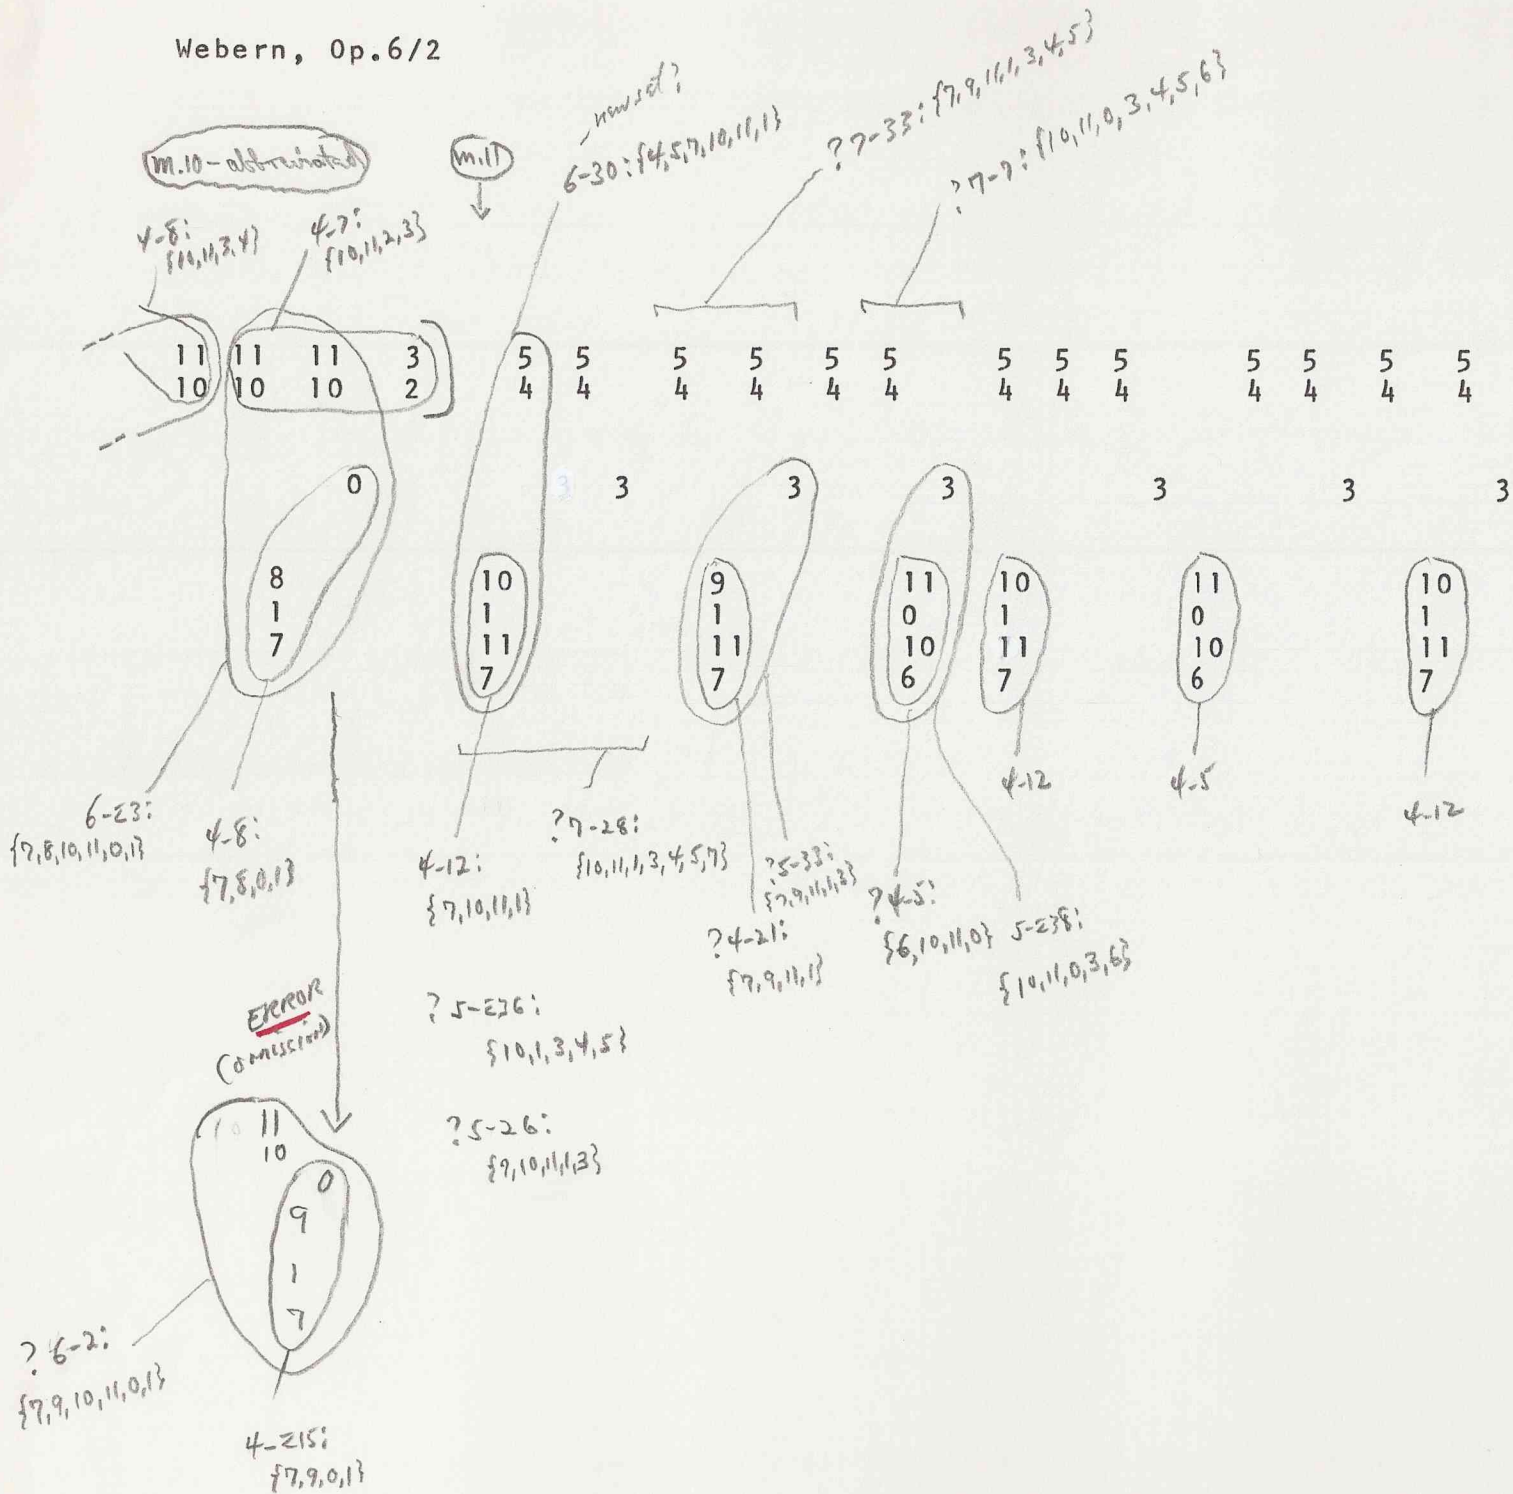 Webern, Op.6/2
new set?
6-30:{4,5,7,10,11,1}
? 7-33:{7,9,11,1,3,4,5}
? 7-7:{10,11,0,3,4,5,6}
m.10-abbreviated
m.11
4-8:
{10,11,3,4}
4-7:
{10,11,2,3}
11 11 11 3 5 5 5 5 5 5 5 5 5 5 5 5 5
10 10 10 2 4 4 4 4 4 4 4 4 4 4 4 4 4
0 3 3 3 3 3 3 3
8 10 9 11 10 11 10
1 1 1 0 1 0 1
7 11 11 10 11 10 11
7 7 6 7 6 7
6-Z3:
{7,8,10,11,0,1}
4-8:
{7,8,0,1}
4-12:
{7,10,11,1}
? 7-28:
{10,11,1,3,4,5,7}
? 5-33:
{7,9,11,1,3}
? 4-21:
{7,9,11,1}
? 4-5:
{6,10,11,0}
5-Z38:
{10,11,0,3,6}
4-12
4-5
4-12
ERROR
(omission)
? 5-Z36:
{10,1,3,4,5}
? 5-26:
{7,10,11,1,3}
10 11
10
0
9
1
7
? 6-2:
{7,9,10,11,0,1}
4-Z15:
{7,9,0,1}